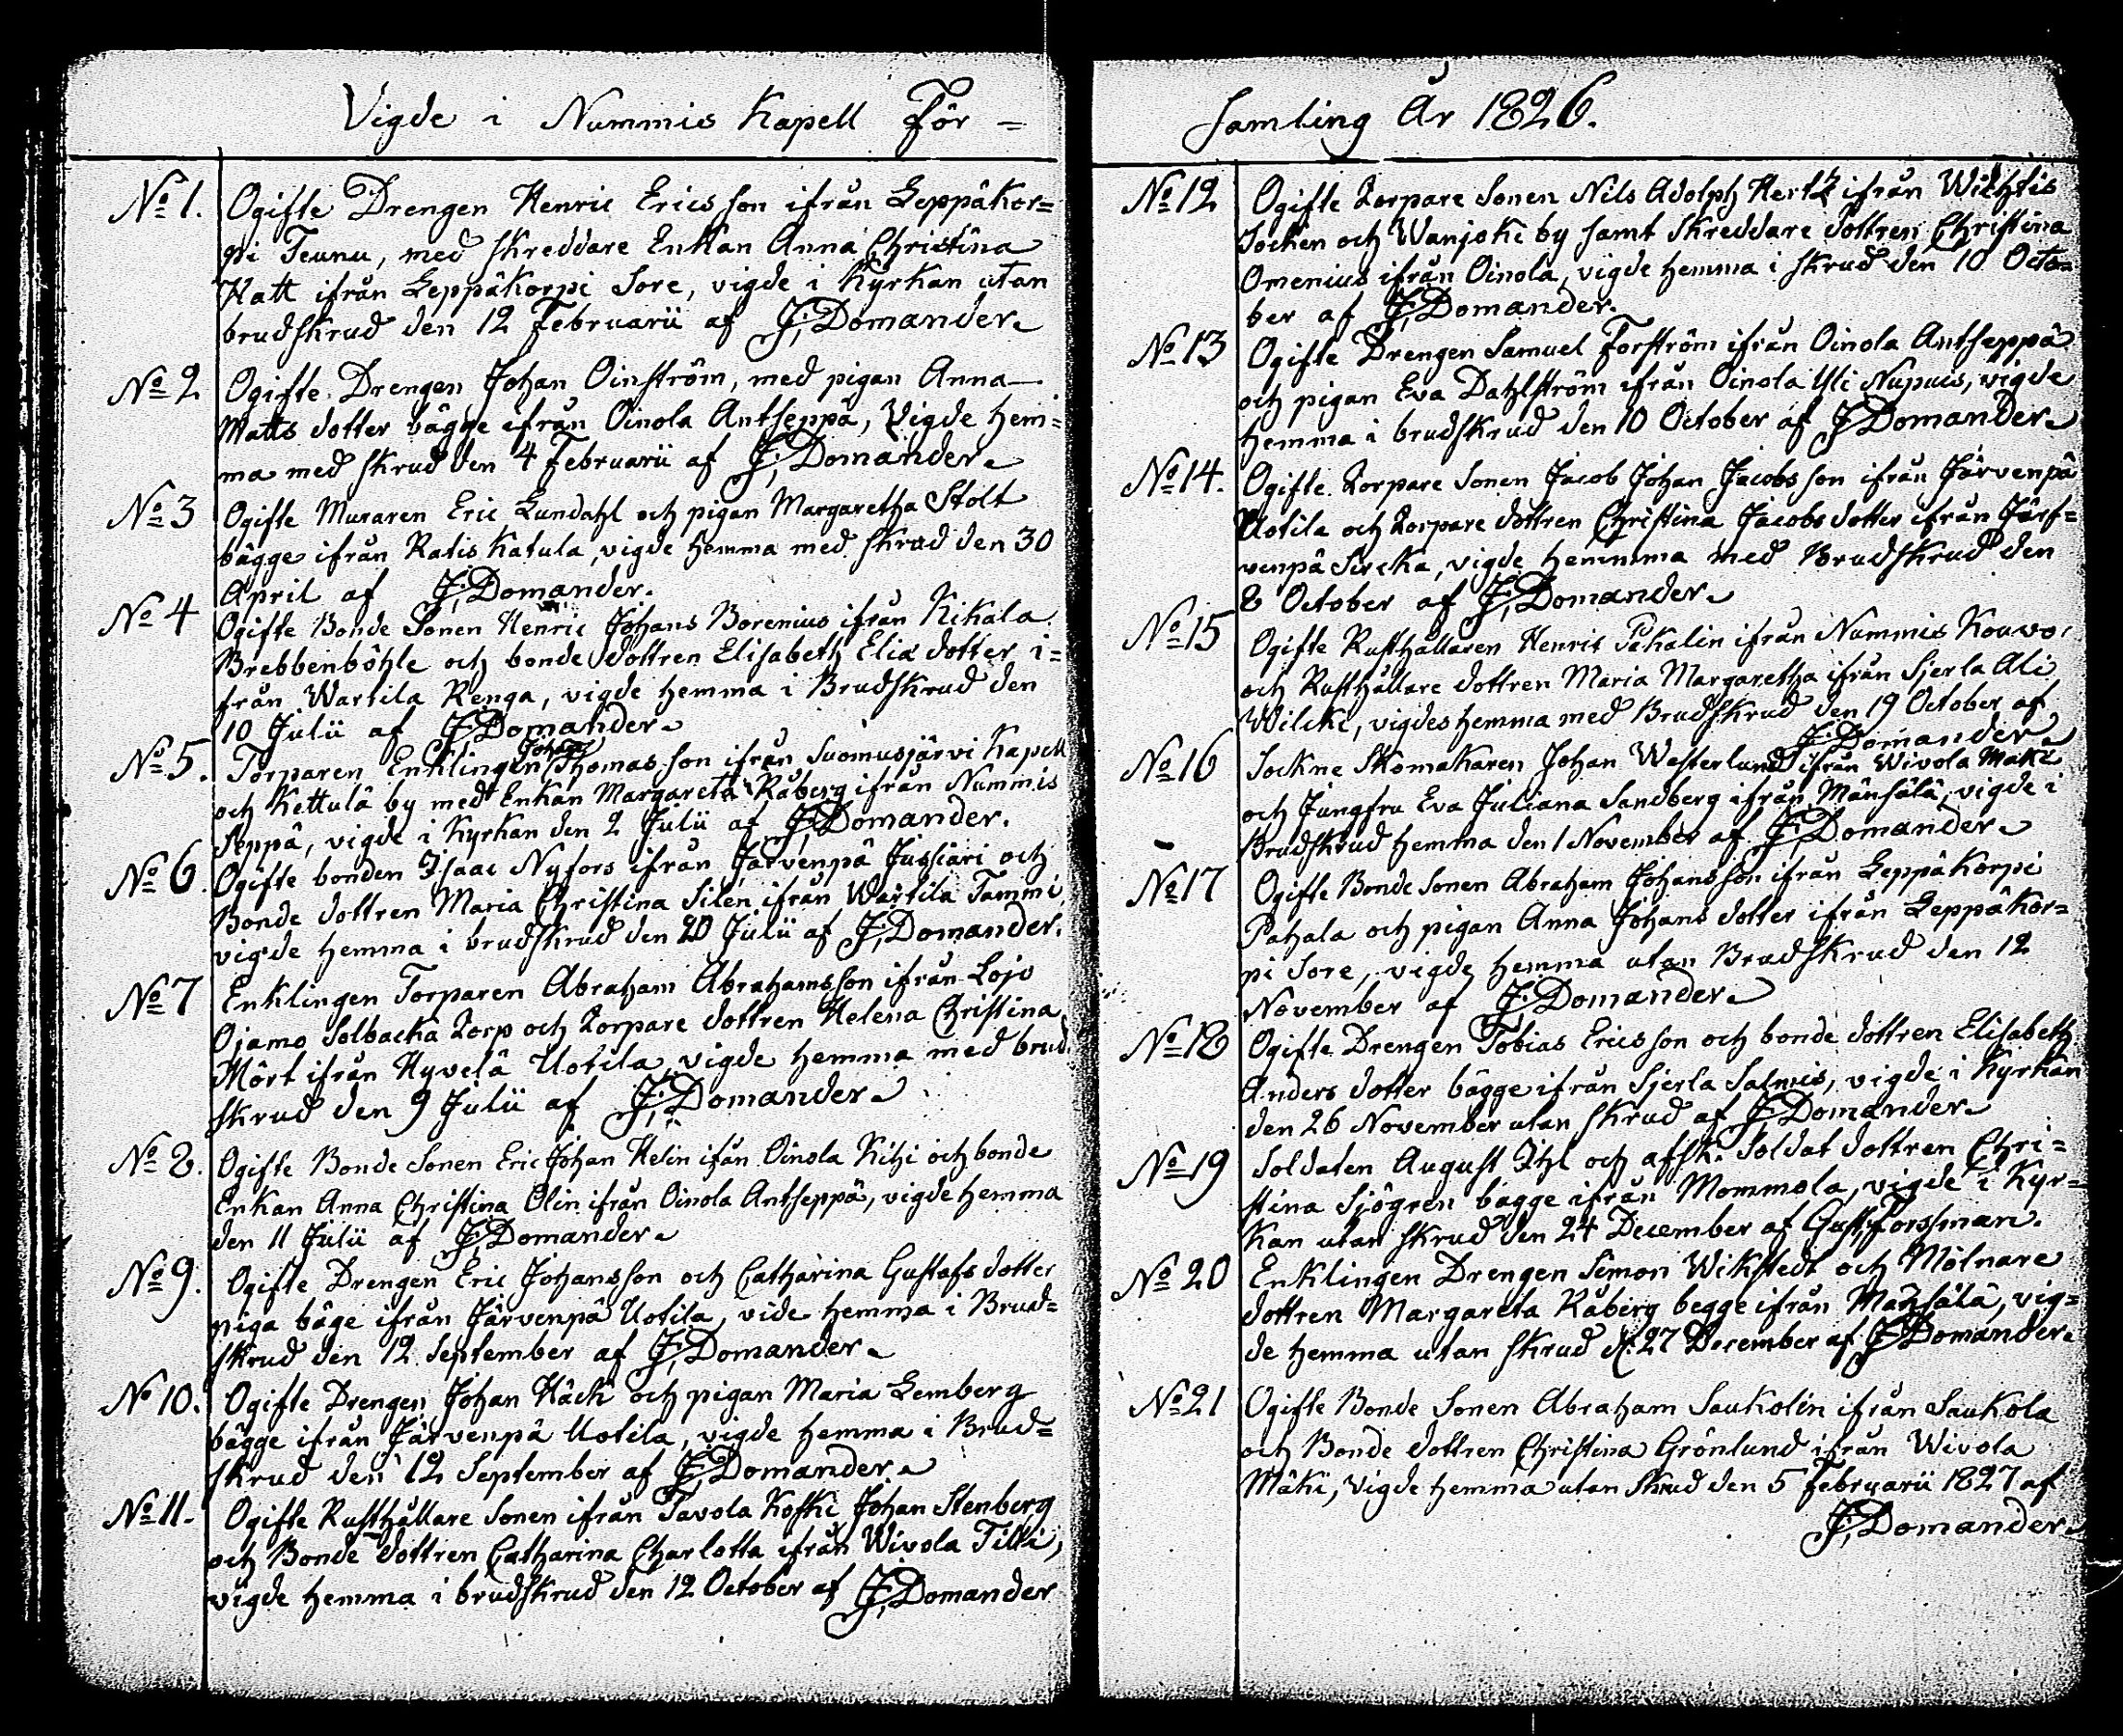 Vigde i Nummis Kapell För=
N:o 1. Ogifte Drengen Henric Ericsson ifrån Leppäkor=
pi Teunu, med skreddare Enkan Anna Christina
Hatt ifrån Leppäkorpi Sore, vigde i Kyrkan utan
brudskrud den 12 Februarii af J. Domander.
N:o 2 Ogifte Drengen Johan Oinström, med pigan Anna
Matts dotter bägge ifrån Oinola Antseppä, Vigde hem=
ma med skrud den 4 Februarii af J. Domander.
N:o 3 Ogifte Muraren Eric Lundahl och pigan Margaretha Stolt
bägge ifrån Ratis Katula, vigde hemma med skrud den 30
April af J. Domander.
N:o 4 Ogifte Bonde Sonen Henric Johans Borenius ifrån Kikala
Brebbenböhle och bonde dottren Elisabeth Eliæ dotter i=
från Wartila Renga, vigde hemma i Brudskrud den
10 Julii af J. Domander.
N:o 5. Torparen Enklingen Johan Thomas son ifrån Suomusjärvi Kapell
och Kettulä by med Enkan Margareta Råberg ifrån Nummis
Seppä, vigde i Kyrkan den 2 Julii af J. Domander.
N:o 6. Ogifte bonden Isaac Nyfors ifrån Järvenpä Jussiari och
Bonde dottren Maria Christina Silén ifrån Wartila Tammi,
vigde hemma i brudskrud den 20 Julii af J. Domander.
N:o 7 Enklingen Torparen Abraham Abrahamsson ifrån Lojo
Ojamo Solbacka Torp och Torpare dottren Helena Christina
Mört ifrån Hyvelä Uotila, vigde hemma med brud
skrud den 9 Julii af J. Domander.
N:o 8. Ogifte Bonde Sonen Eric Johan Helin ifån Oinola Kihi och bonde
Enkan Anna Christina Olin ifrån Oinola Antseppä, vigde hemma
den 11 Julii af J. Domander.
N:o 9. Ogifte Drengen Eric Johansson och Catharina Gustafs dotter
piga bäge ifrån Järvenpä Uotila, vide hemma i Brud=
skrud den 12 September af J. Domander.
N:o 10. Ogifte Drengen Johan Häck och pigan Maria Lemberg
bägge ifrån Järvenpä Uotila, vigde hemma i Brud=
skrud den 12 September af J. Domander.
N:o 11. Ogifte Rusthållare Sonen ifrån Tavola Koski Johan Stenberg
och Bonde dottren Catharina Charlotta ifrån Wivola Tilki,
vigde hemma i brudskrud den 12 October af J. Domander
Samling År 1826.
N:o 12 Ogifte Torpare Sonen Nils Adolph Hertz ifrån Wichtis
Socken och Wanjoki by samt Skreddare dottren Christina
Omenius ifrån Oinola, vigde hemma i skrud den 10 Octo=
ber af J. Domander.
N:o 13 Ogifte Drengen Samuel Forström ifrån Oinola Antseppä
och pigan Eva Dahlström ifrån Oinola Yli Nupuis, vigde
hemma i brudskrud den 10 October af J Domander.
N:o 14. Ogifte Torpare Sonen Jacob Johan Jacobsson ifrån Järvenpä
Uotila och Torpare dottren Christina Jacobs dotter ifrån Järf=
venpä Sircka, vigde hemmma med Brudskrud den
8 October af J. Domander.
N:o 15 Ogifte Rusthållaren Henric Påkalin ifrån Nummis Kouvo,
och Rusthållare dottren Maria Margaretha ifrån Sjerla Ali
Wilcki, vigdes hemma med Brudskrud den 19 October af
J. Domander.
N:o 16 Sockne Skomakaren Johan Westerlund ifrån Wivola Mäki
och Jungfru Eva Juliana Sandberg ifrån Mänsälä, vigde i
Brudskrud hemma den 1 November af J. Domander.
N:o 17 Ogifte Bonde Sonen Abraham Johansson ifrån Leppäkorpi
Pahala och pigan Anna Johans dotter ifrån Leppäkor=
pi Sore, vigde hemma utan Brudskrud den 12
November af J. Domander.
N:o 18 Ogifte Drengen Tobias Ericsson och bonde dottren Elisabeth
Anders dotter bägge ifrån Sjerla Salmis, vigde i Kyrkan
den 26 November utan skrud af J. Domander.
N:o 19 Soldaten August Ihl och afsk. Soldat dottren Chri=
stina Sjögren bägge ifrån Mommola, vigde i Kyr=
kan utan skrud den 24 December af Gust. Forssman.
N:o 20 Enklingen Drengen Simon Wikstedt och Mölnare
dottren Margareta Råberg begge ifrån Mänsälä, vig=
de hemma utan skrud d. 27 December af J. Domander.
N:o 21 Ogifte Bonde Sonen Abraham Saukolin ifrån Saukola
och Bonde dottren Christina Grönlund ifrån Wivola
Mäki, vigde hemma utan skrud den 5 Februarii 1827 af
J. Domander.